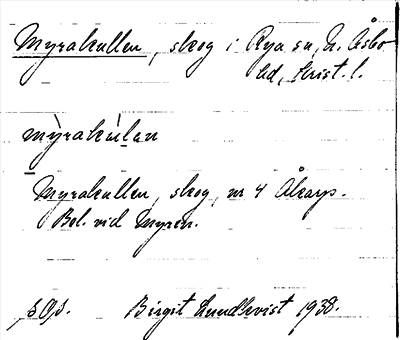 Myrakullen, skog i Rya sn, N. Åsbo
hd, Krist. l.
mỳrakúlan
Myrakullen, skog, nr 4 Åkarp.
Bel. vid Myren.
Birgit Lundkvist 1938.